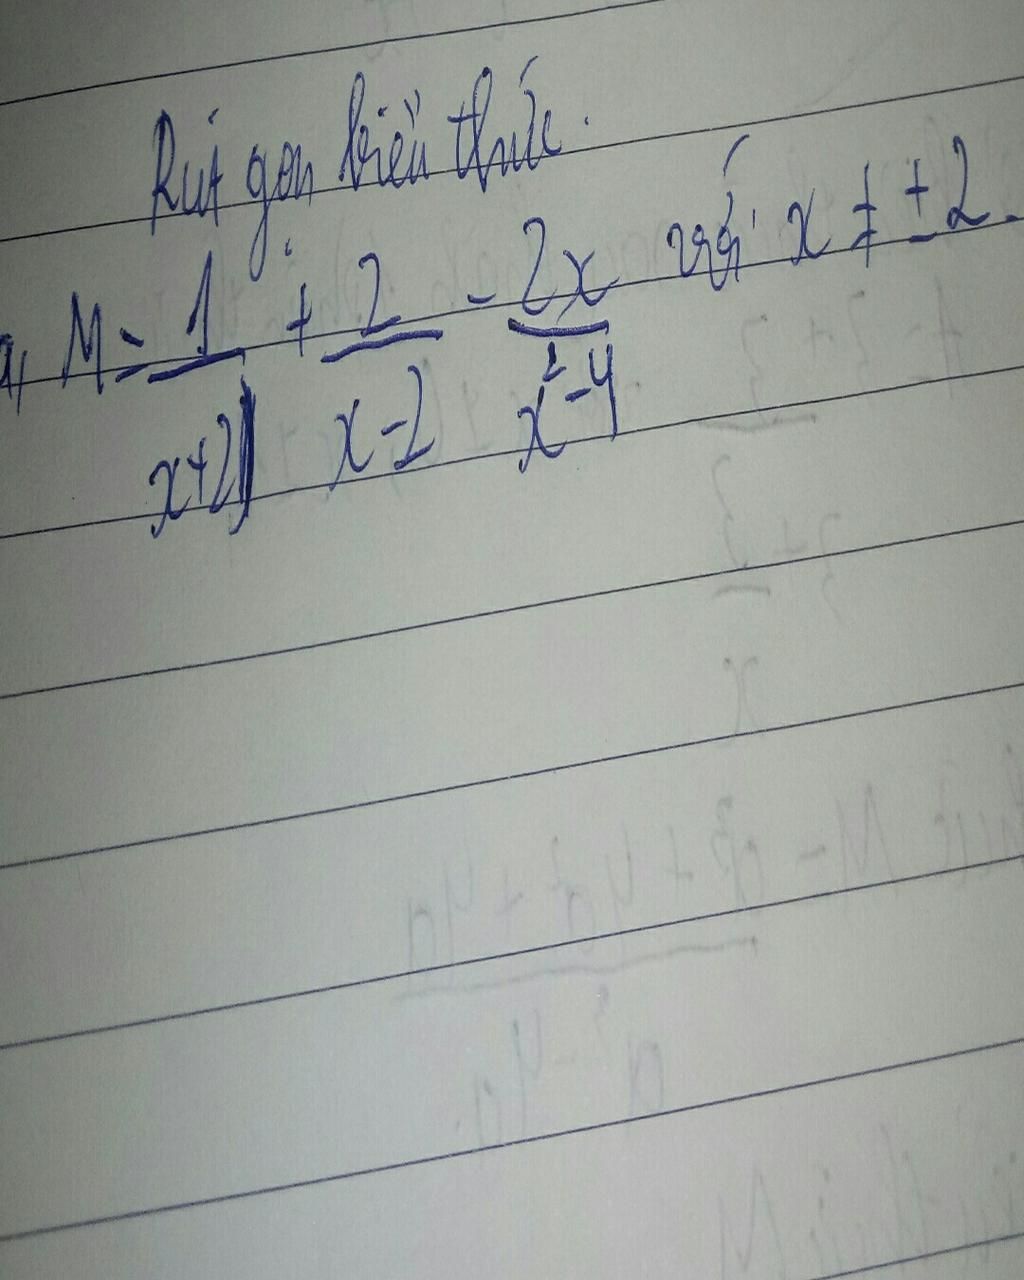 Rút gọn biểu thức.
a, M = 1/x+2 + 2/x-2 - 2x/x²-4 với x ≠ ±2.